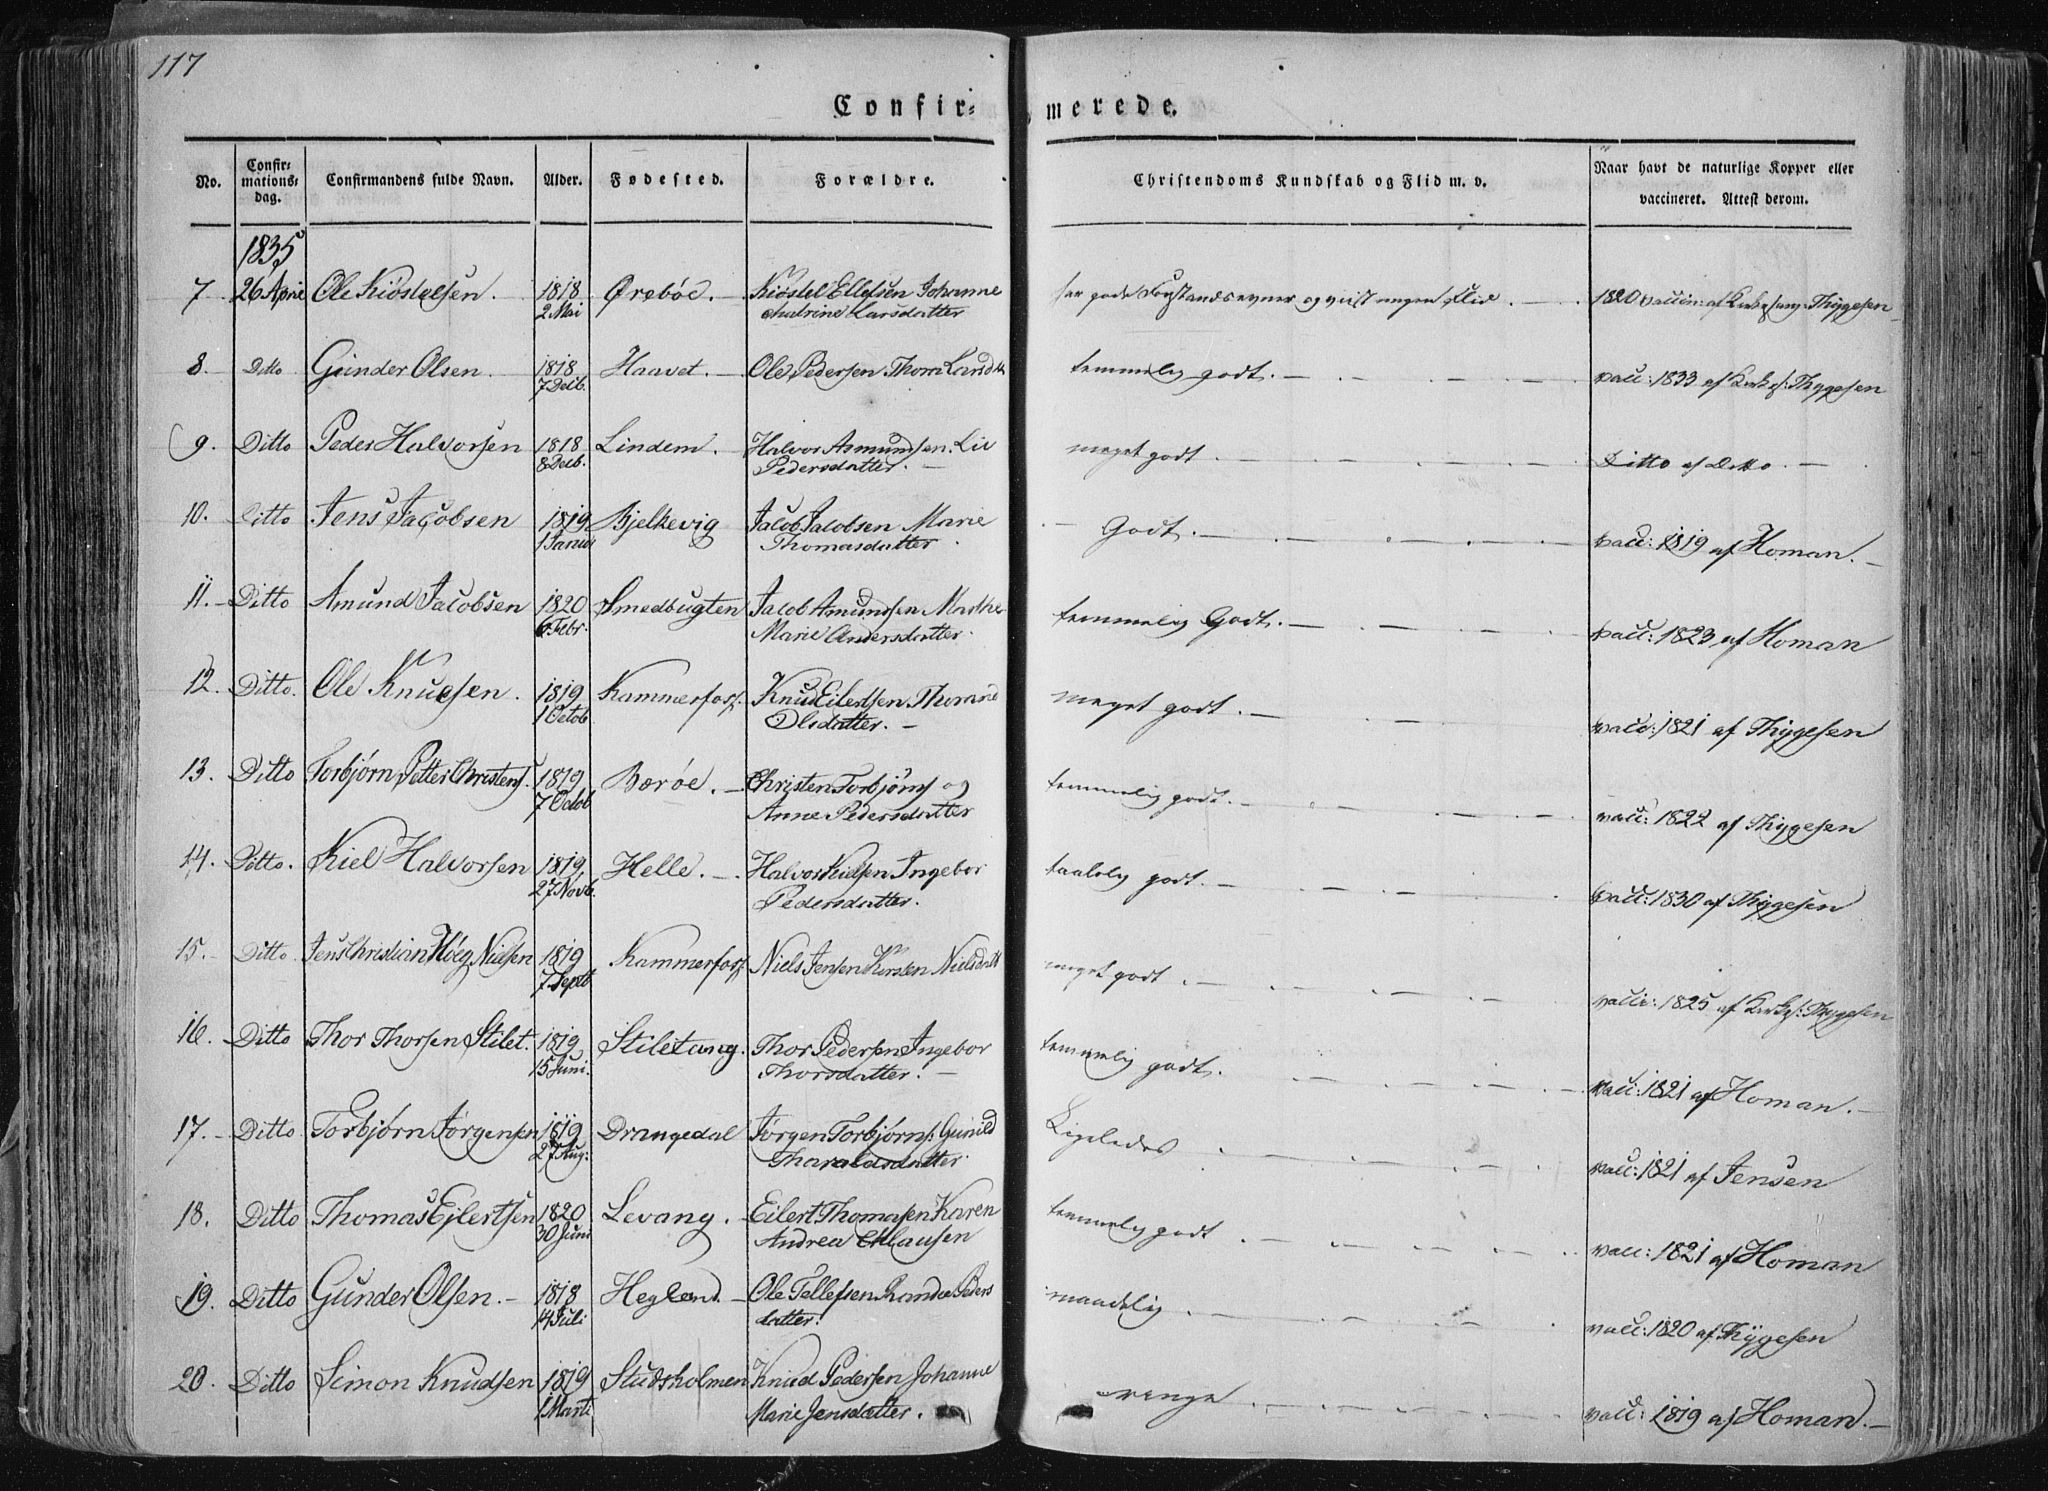 117
Confir- merede.
No. Confir-mations-dag. Confirmandens fulde Navn. Alder. Fødested. Forældre. Christendoms Kundskab og Flid m. v. Naar havt de naturlige Kopper eller vaccineret. Attest derom.
1835
7 26 April Ole Kiöstelsen. 1818 Örebôe. Kiöstel Ellefsen Johanne har gode Forstandsevner og viist megen Flid. 1820 vaccin: af Kirkesang: Thygesen
2 Mai Chatrine Larsdatter
8. Ditto Gunder Olsen. 1818 Haavet. Ole Pedersen Thore Larsdtt temmelig godt. vacc: 1833 af Kirkes: Thygesen
7 Decb.
9. Ditto Peder Halvorsen 1818 Lindem. Halvor Asmundsen. Liv meget godt Ditto af Ditto.
8 Decb. Pedersdatter.
10. Ditto Jens Jacobsen 1819 Bjelkevig Jacob Jacobsen Marie Godt. vacc: 1819 af Homan.
1 Janua Thomasdatter.
11. Ditto Amund Jacobsen 1820 Smedbugten Jacob Amundsen Marthe temmelig Godt. vacc: 1823 af Homan
6 Febr: Marie Andersdatter.
12. Ditto. Ole Knudsen. 1819 Kammerfoss. Knud Eilertsen Thorand meget godt. vacc: 1821 af Thygesen
1 Octob Olsdatter.
13. Ditto Torbjørn Petter Christens. 1819 Barøe. Christen Torbjørns og temmelig godt. vacc: 1822 af Thygesen
7 Octob Anne Pedersdatter
14. Ditto. Kiel Halvorsen 1819 Helle. Halvor Kielsen Ingebor taalelig godt. vacc: 1830 af Thygesen
27 Novb. Pedersdatter.
15. Ditto Jens Christian Høeg Nielsen 1819 Kammerfoss Niels Jensen Kirsten Nielsdatt meget godt. vacc: 1825 af Kirkes: Thygesen
7 Septb
16. Ditto Thor Thorsen Stilet. 1819 Stiletang. Thor Pedersen Ingebor temmelig godt. vacc: 1821 af Homan.
15 Juni. Thorsdatter.
17. Ditto Torbjørn Jørgensen 1819 Drangedal Jørgen Torbjørns: Gunild Ligeledes vacc: 1821 af Jensen
27 Aug: Tharaldsdatter.
18. Ditto Thomas Ejlertsen 1820 Levang. Eilert Thomasen Karen temmelig godt vacc: 1821 af Homan
30 Juni Andrea Clausen
19. Ditto Gunder Olsen. 1818 Hegland. Ole Tellefsen Randve Peders maadelig vacc: 1820 af Thygesen
14 Juli datter.
20. Ditto Simon Knudsen 1819 Studsholmen Knud Pedersen Johanne vacc: 1819 af Homan.
1 Marti Marie Jensdatter.